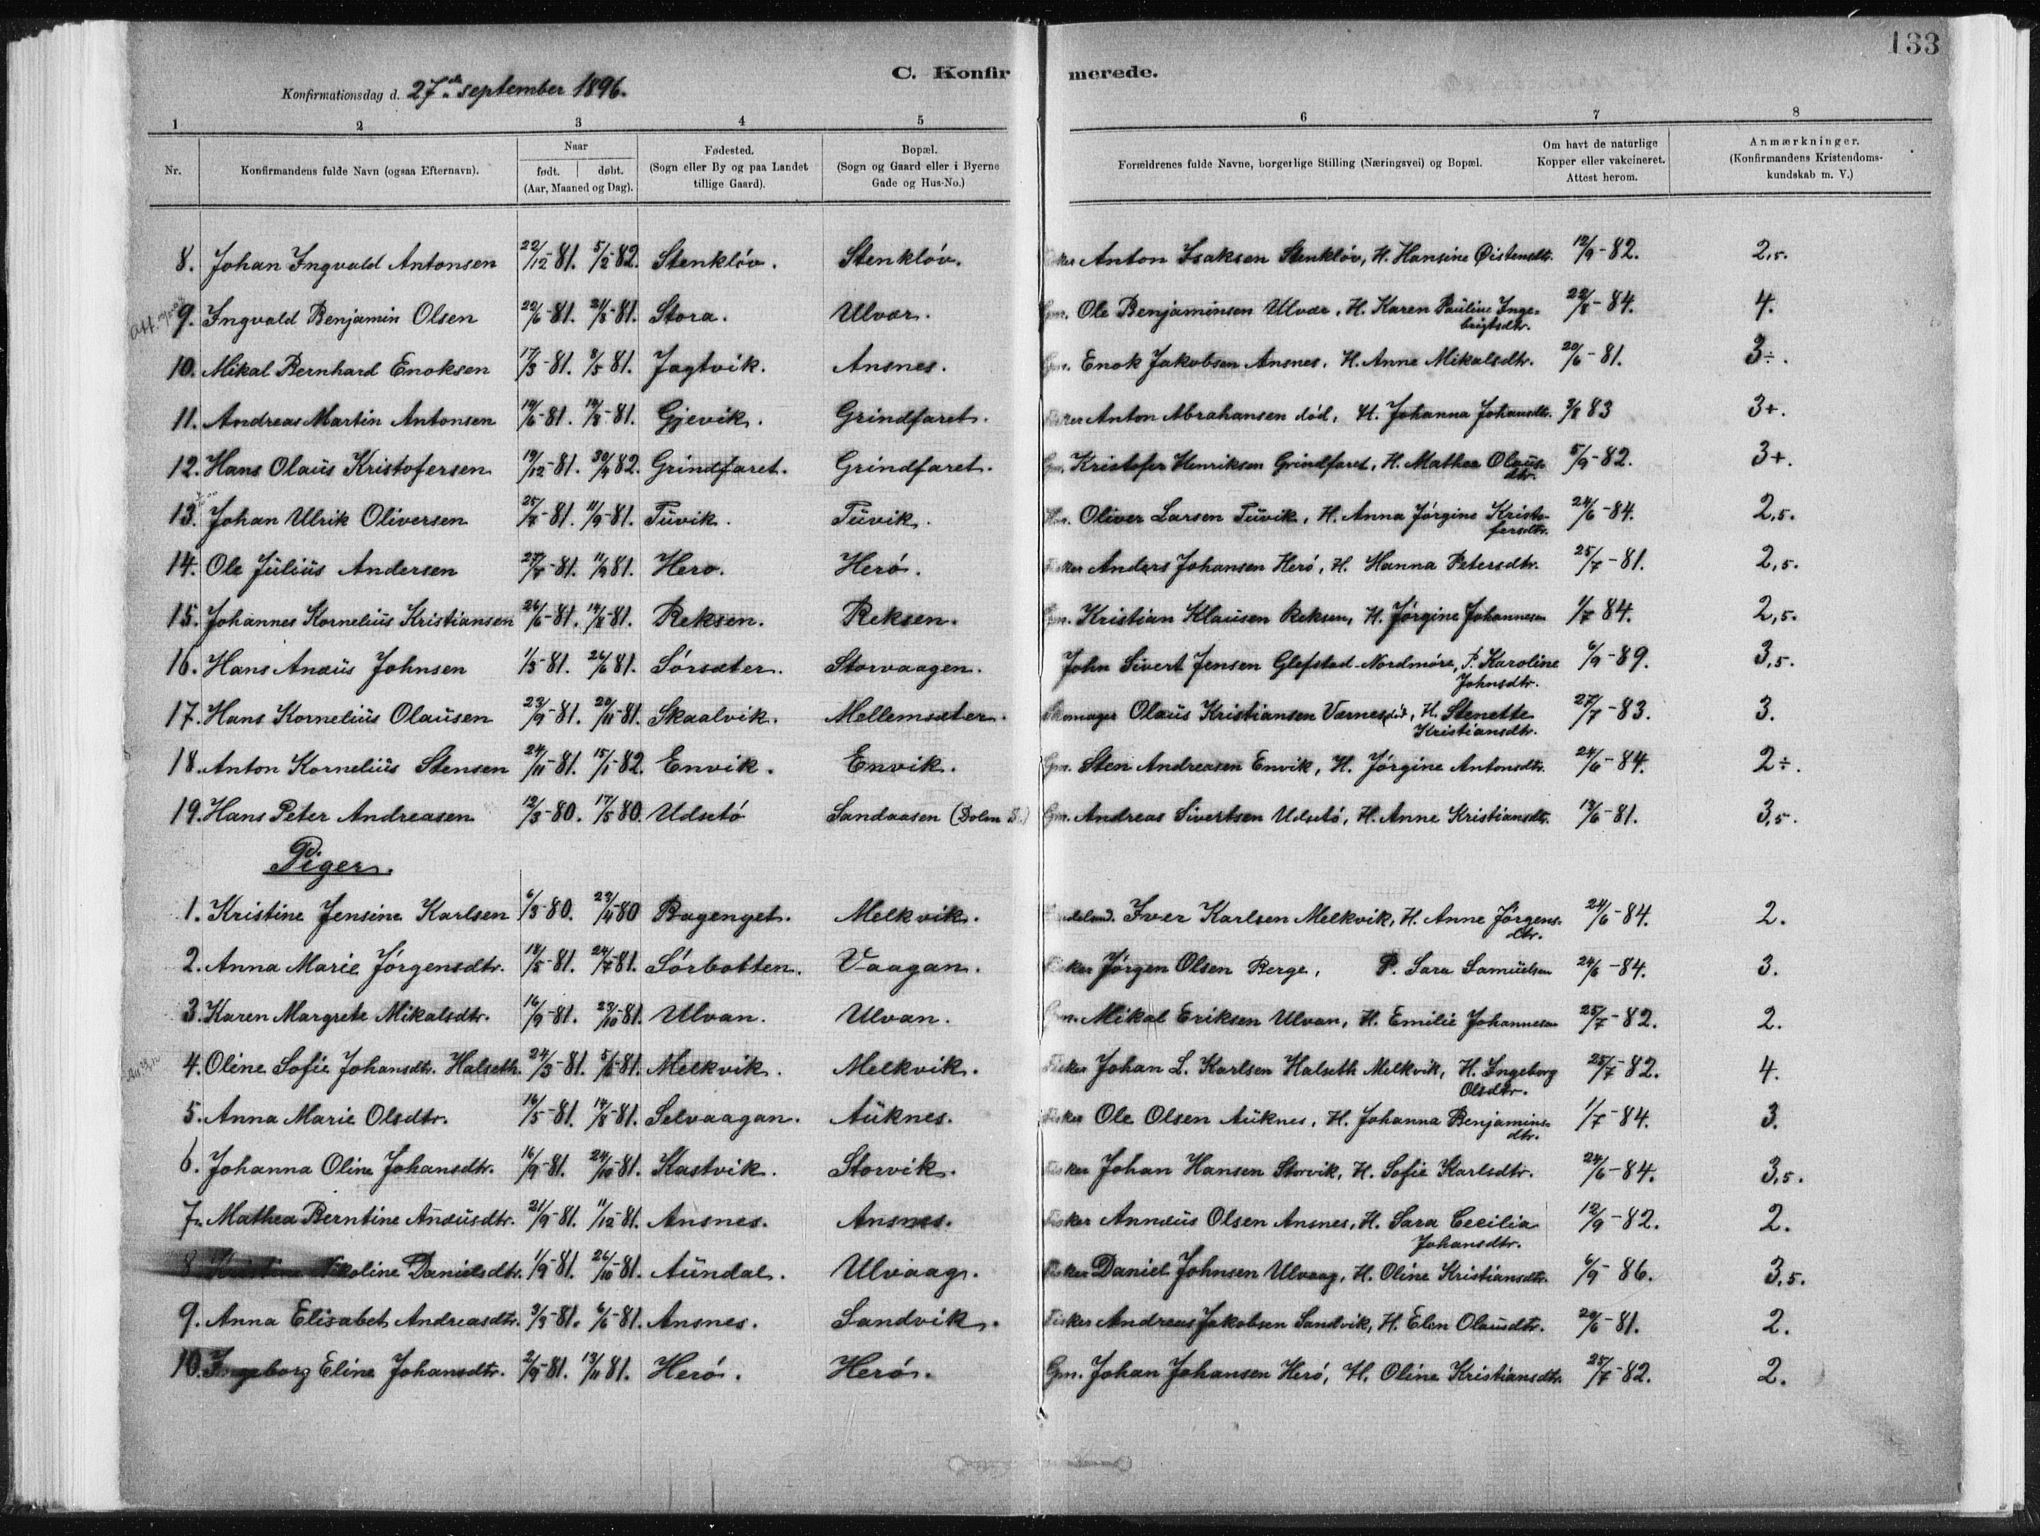 133
C. Konfirmerede.
Konfirmationsdag d. 27de september 1896.
1 2 3 4 5 6 7 8
Nr. Konfirmandens fulde Navn (ogsaa Efternavn). Naar født. døbt. (Aar, Maaned og Dag). Fødested. (Sogn eller By og paa Landet tillige Gaard). Bopæl. (Sogn og Gaard eller i Byerne Gade og Hus-No.) Forældrenes fulde Navne, borgerlige Stilling (Næringsvei) og Bopæl. Om havt de naturlige Kopper eller vakcineret. Attest herom. Anmærkninger. (Konfirmandens Kristendomskundskab m. V.)
8. Johan Ingvald Antonsen 22/12-81. 5/2-82. Stenkløv. Stenkløv. Anton Isaksen Stenkløv, H. Hansine Øistensdtr. 12/9-82. 2,5.
9. Ingvald Benjamin Olsen 22/6-81. 21/8-81. Stora. Ulvær. Gm. Ole Benjaminsen Ulvær, H. Karen Pauline Ingebrigtsdtr. 22/8-84. 4.
10. Mikal Bernhard Enoksen 17/3-81. 8/5 81. Jagtvik. Ansnes. Gm. Enok Jakobsen Ansnes, H. Anne Mikalsdtr. 20/6-81. 3÷.
11. Andreas Martin Antonsen 12/6-81. 14/8-81. Gjevik. Grindfaret. Fisker Anton Abrahansen død, H. Johanna Johansdtr. 3/8 83 3+.
12. Hans Olaüs Kristofersen 19/12-81. 30/4 82. Grindfaret. Grindfaret. Gm. Kristofer Henriksen Grindfaret, H. Mathea Olausdtr. 5/9-82. 3+.
13. Johan Ulrik Oliversen 25/7-81. 11/9-81. Tüvik. Tüvik. Oliver Larsen Tüvik, H. Anna Jørgine Kristofersdtr. 24/6-84. 2,5.
14. Ole Jülius Andersen 27/7-81. 11/9 81. Herø. Herø. Fisker Anders Johansen Herø, H. Hanna Petersdtr. 25/7-81. 2,5.
15. Johannes Kornelius Kristiansen 26/6-81. 14/8-81. Reksen. Reksen. Gm. Kristian Klausen Reksen, H. Jørgine Johannesen 1/7 84. 2,5.
16. Hans Anæüs Johnsen 1/5-81. 26/6 81. Sørsæter. Storvaagen. John Sivert Jensen Glefstad-Nordmøre, P. Karoline Johnsdtr. 6/9-89. 3,5.
17. Hans Kornelius Olaüsen 23/9-81. 20/11-81. Skaalvik. Mellemsæter. Skomager Olaüs Kristiansen Værnes, død, H. Stenette Kristiansdtr. 27/7-83. 3.
18. Anton Kornelius Stensen 24/11-81. 15/1-82. Envik. Envik. Gm. Sten Andreasen Envik, H. Jørgine Antonsdtr. 24/6-84. 2÷.
19. Hans Peter Andreasen 12/3-80. 17/5 80. Udsetø Sandaasen (Dolm S.) Gm. Andreas Sivertsen Udsetø, H. Anne Kristiansdtr. 13/6-81. 3,5.
Piger.
1. Kristine Jensine Karlsen 6/3-80. 22/4-80 Bagenget. Melkvik. Iver Karlsen Melkvik, H. Anne Jørgensdtr. 24/6-84. 2.
2. Anna Marie Jørgensdtr. 18/5-81. 24/7-81. Sørbotten. Vaagan. Fisker Jørgen Olsen Berge, P. Sara Samüelsen 24/6-84. 3.
3. Karen Margrete Mikalsdtr. 16/9-81. 23/10-81. Ulvan. Ulvan. Gm. Mikal Eriksen Ulvan, H. Emilie Johannesen 25/7-82. 2.
4. Oline Sofie Johansdtr. Halseth. 24/3-81. 5/6-81. Melkvik. Melkvik. Fisker Johan L. Karlsen Halseth Melkvik, H. Ingeborg Olsdtr. 25/7-82. 4.
5. Anna Marie Olsdtr. 16/5-81. 14/8-81. Selvaagan. Aüknes. Fisker Ole Olsen Aüknes, H. Johanna Benjaminsdtr. 1/7-84. 3.
6. Johanna Oline Johansdtr. 16/9-81. 24/10-81. Kastvik. Storvik. Fisker Johan Hansen Storvik, H. Sofie Karlsdtr. 24/6-84. 3,5.
7. Mathea Berntine Anæusdtr. 21/9-81. 11/12-81. Ansnes. Ansnes. Fisker Annæus Olsen Ansnes, H. Sara Cecilia Johansdtr. 12/9-82. 2.
8. Kristine Nikoline Danielsdtr. 1/9-81. 26/10-81. Aündal. Ulvaag. Fisker Daniel Johnsen Ulvaag, H. Oline Kristiansdtr. 6/9-86. 3,5.
9. Anna Elisabet Andreasdtr. 3/3-81. 6/6-81. Ansnes. Sandvik. Fisker Andreas Jakobsen Sandvik, H. Elen Olausdtr. 20/6-81. 2.
10. Ingeborg Eline Johansdtr. 2/9-81. 13/11 81. Herø. Herø. Gm. Johan Johansen Herø, H. Oline Kristiansdtr. 25/7-82. 2.